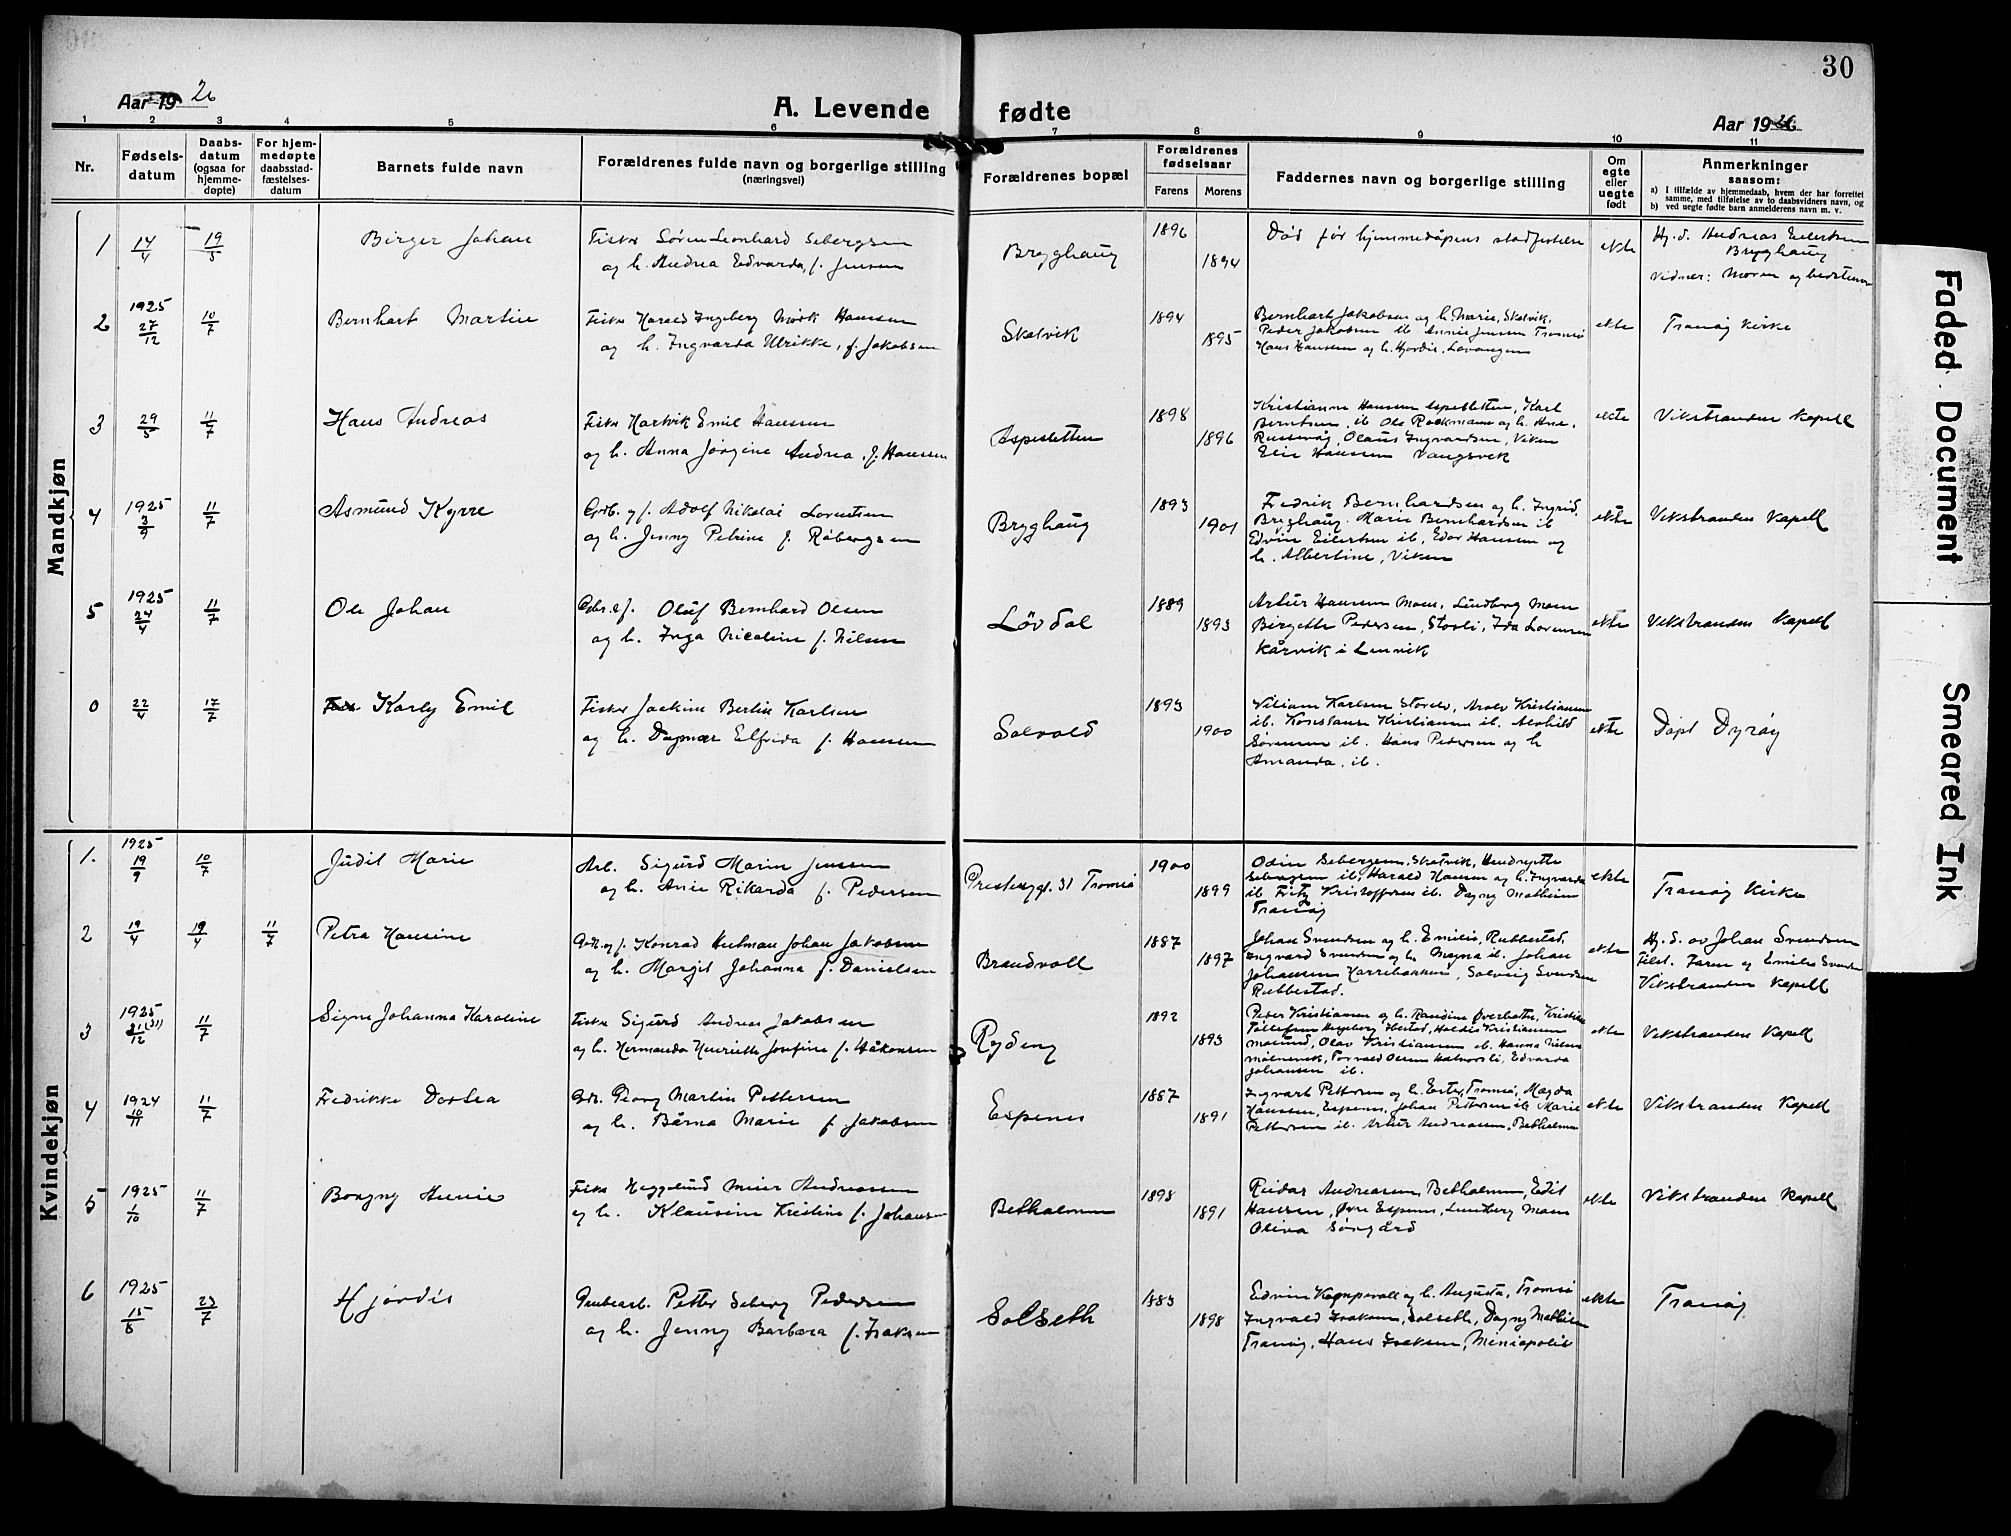 30
Aar 1926
A. Levende fødte
Aar 1926
1 2 3 4 5 6 7 8 9 10 11
Nr.
Fødsels-
datum
Daabs-
datum
(ogsaa for
hjemme-
døpte)
For hjem-
medøpte
daabsstad-
fæstelses-
datum
Barnets fulde navn
Forældrenes fulde navn og borgerlige stilling
(næringsvei)
Forældrenes bopæl
Forældrenes
fødselsaar
Farens
Morens
Faddernes navn og borgerlige stilling
Om
egte
eller
uegte
født
Anmerkninger
saasom:
a) I tilfælde av hjemmedaab, hvem der har forrettet
samme, med tilføielse av to daabsvidners navn, og
b) ved uegte fødte barn anmelderens navn m. v.
Mandkjøn
1 14/4 19/5 Birger Johan
Fisker Søren Leonhard Sebergsen
og h. Andrea Edvarda, f. Jensen
Brygghaug 1896 1894
Død før hjemmedåpens stadfestelse
ekte
Hj. d. Andreas Eilertsen
Brygghaug
Vidner: Moren og bedstemor
2 1925 27/12 10/7 Bernhart Martin
Fisker Harald Ingeberg Mørk Hansen
og h. Ingvarda Ulrikke, f. Jakobsen
Skatvik 1894 1895
Bernhart Jakobsen og h. Marie, Skatvik,
Peder Jakobsen ib Annie Jensen Tromsø
Hans Hansen og h. Hjørdis, Lavangen
ekte
Tranøy kirke
3 29/5 11/7 Hans Andreas
Fisker Hartvik Emil Hansen
og h. Anna Jørgine Andrea, f. Hansen
Aspesletten 1898 1896
Kristianne Hansen Aspesletten, Karl
Berntsen, ib Ole Rockmann og h. Ane,
Russevåg, Olaus Ingvardsen, Viken
Hansen Vangsvik
ekte
Vikstranden Kapell
4 1925 3/9 11/7 Asmund Kyrre
Grb. og f. Adolf Nikolai Lorentsen
og h. Jenny Petrine f. Røbergsen
Brygghaug 1893 1901
Fredrik Bernhardsen og h. Ingrid,
Brygghaug. Marie Bernhardsen ib
Edvin Eilertsen ib, Edor Hansen og
h. Albertine, Viken
ekte
Vikstranden Kapell
5 1925 24/4 11/7 Ole Johan
Gbr. & f. Oluf Bernhard Olsen
og h. Inga Nicoline f. Nilsen
Løvdal 1889 1893
Artur Hansen Moen, Lindberg Moen
Birgette Pedersen, Stovli, Ida Lorensen
Kårvik i Lenvik
ekte
Vikstranden Kapell
0 22/4 17/7 Karly Emil
Fisker Joakim Bertin Karlsen
og h. Dagmar Elfrida f. Hansen
Solvold 1893 1900
Viliam Karlsen, Kristiansen
ib. Konstanse Kristiansen ib. Alvhild
Sørensen ib. Hans Pedersen og h
Amanda, ib.
ekte
Døpt Dyrøy
Kvindekjøn
1. 1925 19/9 10/7 Judit Marie
Arb. Sigurd Marin Jensen
og h. Anie Rikarda f. Pedersen
31 Tromsø 1900 1899
Odin Sebergsen, Skatvik, Hendrijette
Sebergsen ib, Harald Hansen og h. Ingvarda
ib Fritz Kristoffersen ib. Dagny Mathisen
Tranøy
ekte
Tranøy kirke
2 19/4 19/4 11/7 Petra Hansine
Grb. og f. Konrad Hulman Johan Jakobsen
og h. Margit Johanna f. Danielsen
Brandvoll 1887 1897
Johan Svendsen og h. Emilie, Rubbestad,
Ingvard Svendsen og h. Magna ib. Johan
Johansen Harrebakken, Solveig Svendsen
Rubbestad.
ekte
Hj. d. av Johan Svendsen
Tilst. Faren og Emilie Svendsen
Vikstranden Kapell
3 1925 21/12 (31) 11/7 Signe Johanna Karoline
Fisker Sigurd Andreas Jakobsen
og h. Hermanda Henriette Josefine f. Håkonsen
Rydeng 1892 1893
Peder Kristiansen og h. Randine Øverbotten, Kristine
Tollefsen, Haldis Kristiansen
Olav Kristiansen ib. Hanna Nilsen
Torvald Olsen, Edvarda
Johansen ib.
ekte
Vikstranden Kapell
4 1924 10/11 11/7 Fredrikke Dortea
Gbr. Georg Martin Pettersen
og h. Bårna Marie f. Jakobsen
Espenes 1887 1891
Ingvart Pettersen og h. Ester, Tromsø, Magda
Hanssen, Espenes, Johan Pettersen ib Marie
Pettersen ib. Artur Andreassen, Betholmen
ekte
Vikstranden Kapell
5 1925 1/10 11/7 Borgny Annie
Fisker Heggelund Meier Andreassen
og h. Klausine Kristine f. Johansen
Betholmen 1898 1891
Reidar Andreasen, Betholmen, Edit
Hansen, Øvre Espenes, Lundberg Moen
Oliva Sørgård
ekte
Vikstranden Kapell
6 1925 15/8 23/7 Hjørdis
Grubearb. Petter Seberg Pedersen
og h. Jenny Barbara f. Isaksen
Solseth 1883 1898
Edvin Kampevoll og h. Augusta, Tromsø
Ingvald Isaksen, Solseth, Dagny Mathisen
Tranøy, Hans Isaksen, Miniapolis
ekte
Tranøy
Faded Document
Smeared Ink